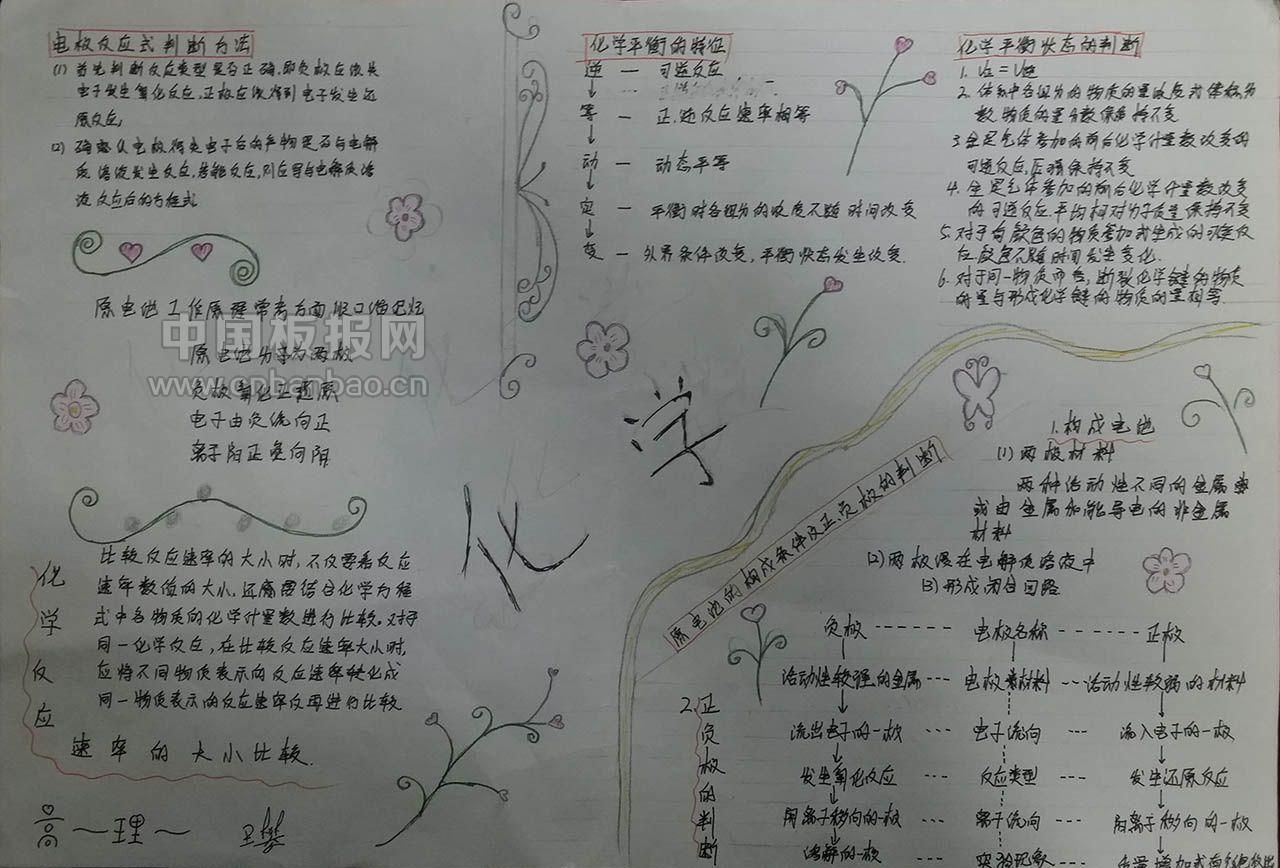 电极反应式判断方法
(1) 首先判断反应类型是否正确,即负极应该是
电子发生氧化反应,正极应该得到电子发生还
原反应;
(2) 确认从电极得失电子后的产物是否与电解
质溶液发生反应,若能反应,则应写与电解质溶
液反应后的方程式
原电池工作原理常考方面顺口溜记忆
原电池分为两极
负极氧化正还原
电子由负流向正
离子阳正阴向阴
化学反应
速率的大小比较.
比较反应速率的大小时,不仅要看反应
速率数值的大小,还需要结合化学方程
式中各物质的化学计量数进行比较。对于
同一化学反应,在比较反应速率大小时,
应将不同物质表示的反应速率转化成
同一物质表示的反应速率后再进行比较
高一理一
化学
化学平衡的特征
逆 — 可逆反应
等 — 正.逆反应速率相等
动 — 动态平等
定 — 平衡时各组分的浓度不随时间改变
变 — 外界条件改变,平衡状态发生改变.
化学平衡状态的判断
1. V正=V逆
2. 体系中各组分的物质的量浓度或体积分
数.物质的量分数保持不变
3.全是气体参加的前后化学计量数改变的
可逆反应,压强保持不变
4. 全是气体参加的前后化学计量数改变
的可逆反应.平均相对分子质量保持不变
5.对于有颜色的物质参加或生成的可逆反
应.颜色不随时间发生变化.
6.对于同一物质而言,断裂化学键的物质
的量与形成化学键的物质的量相等.
原电池的构成条件及正.负极的判断
1.构成电池
(1)两极材料
两种活动性不同的金属
或由金属和能导电的非金属
材料
(2)两极浸在电解质溶液中
(3)形成闭合回路
2.正负极的判断
负极 电极名称 正极
活动性较强的金属 — 电极材料 — 活动性较弱的材料
流出电子的一极 电子流向 流入电子的一极
发生氧化反应 反应类型 发生还原反应
阴离子移向的一极 离子流向 阳离子移向的一极
溶解的一极 实验现象
中国板报网
www.cnbanbao.cn